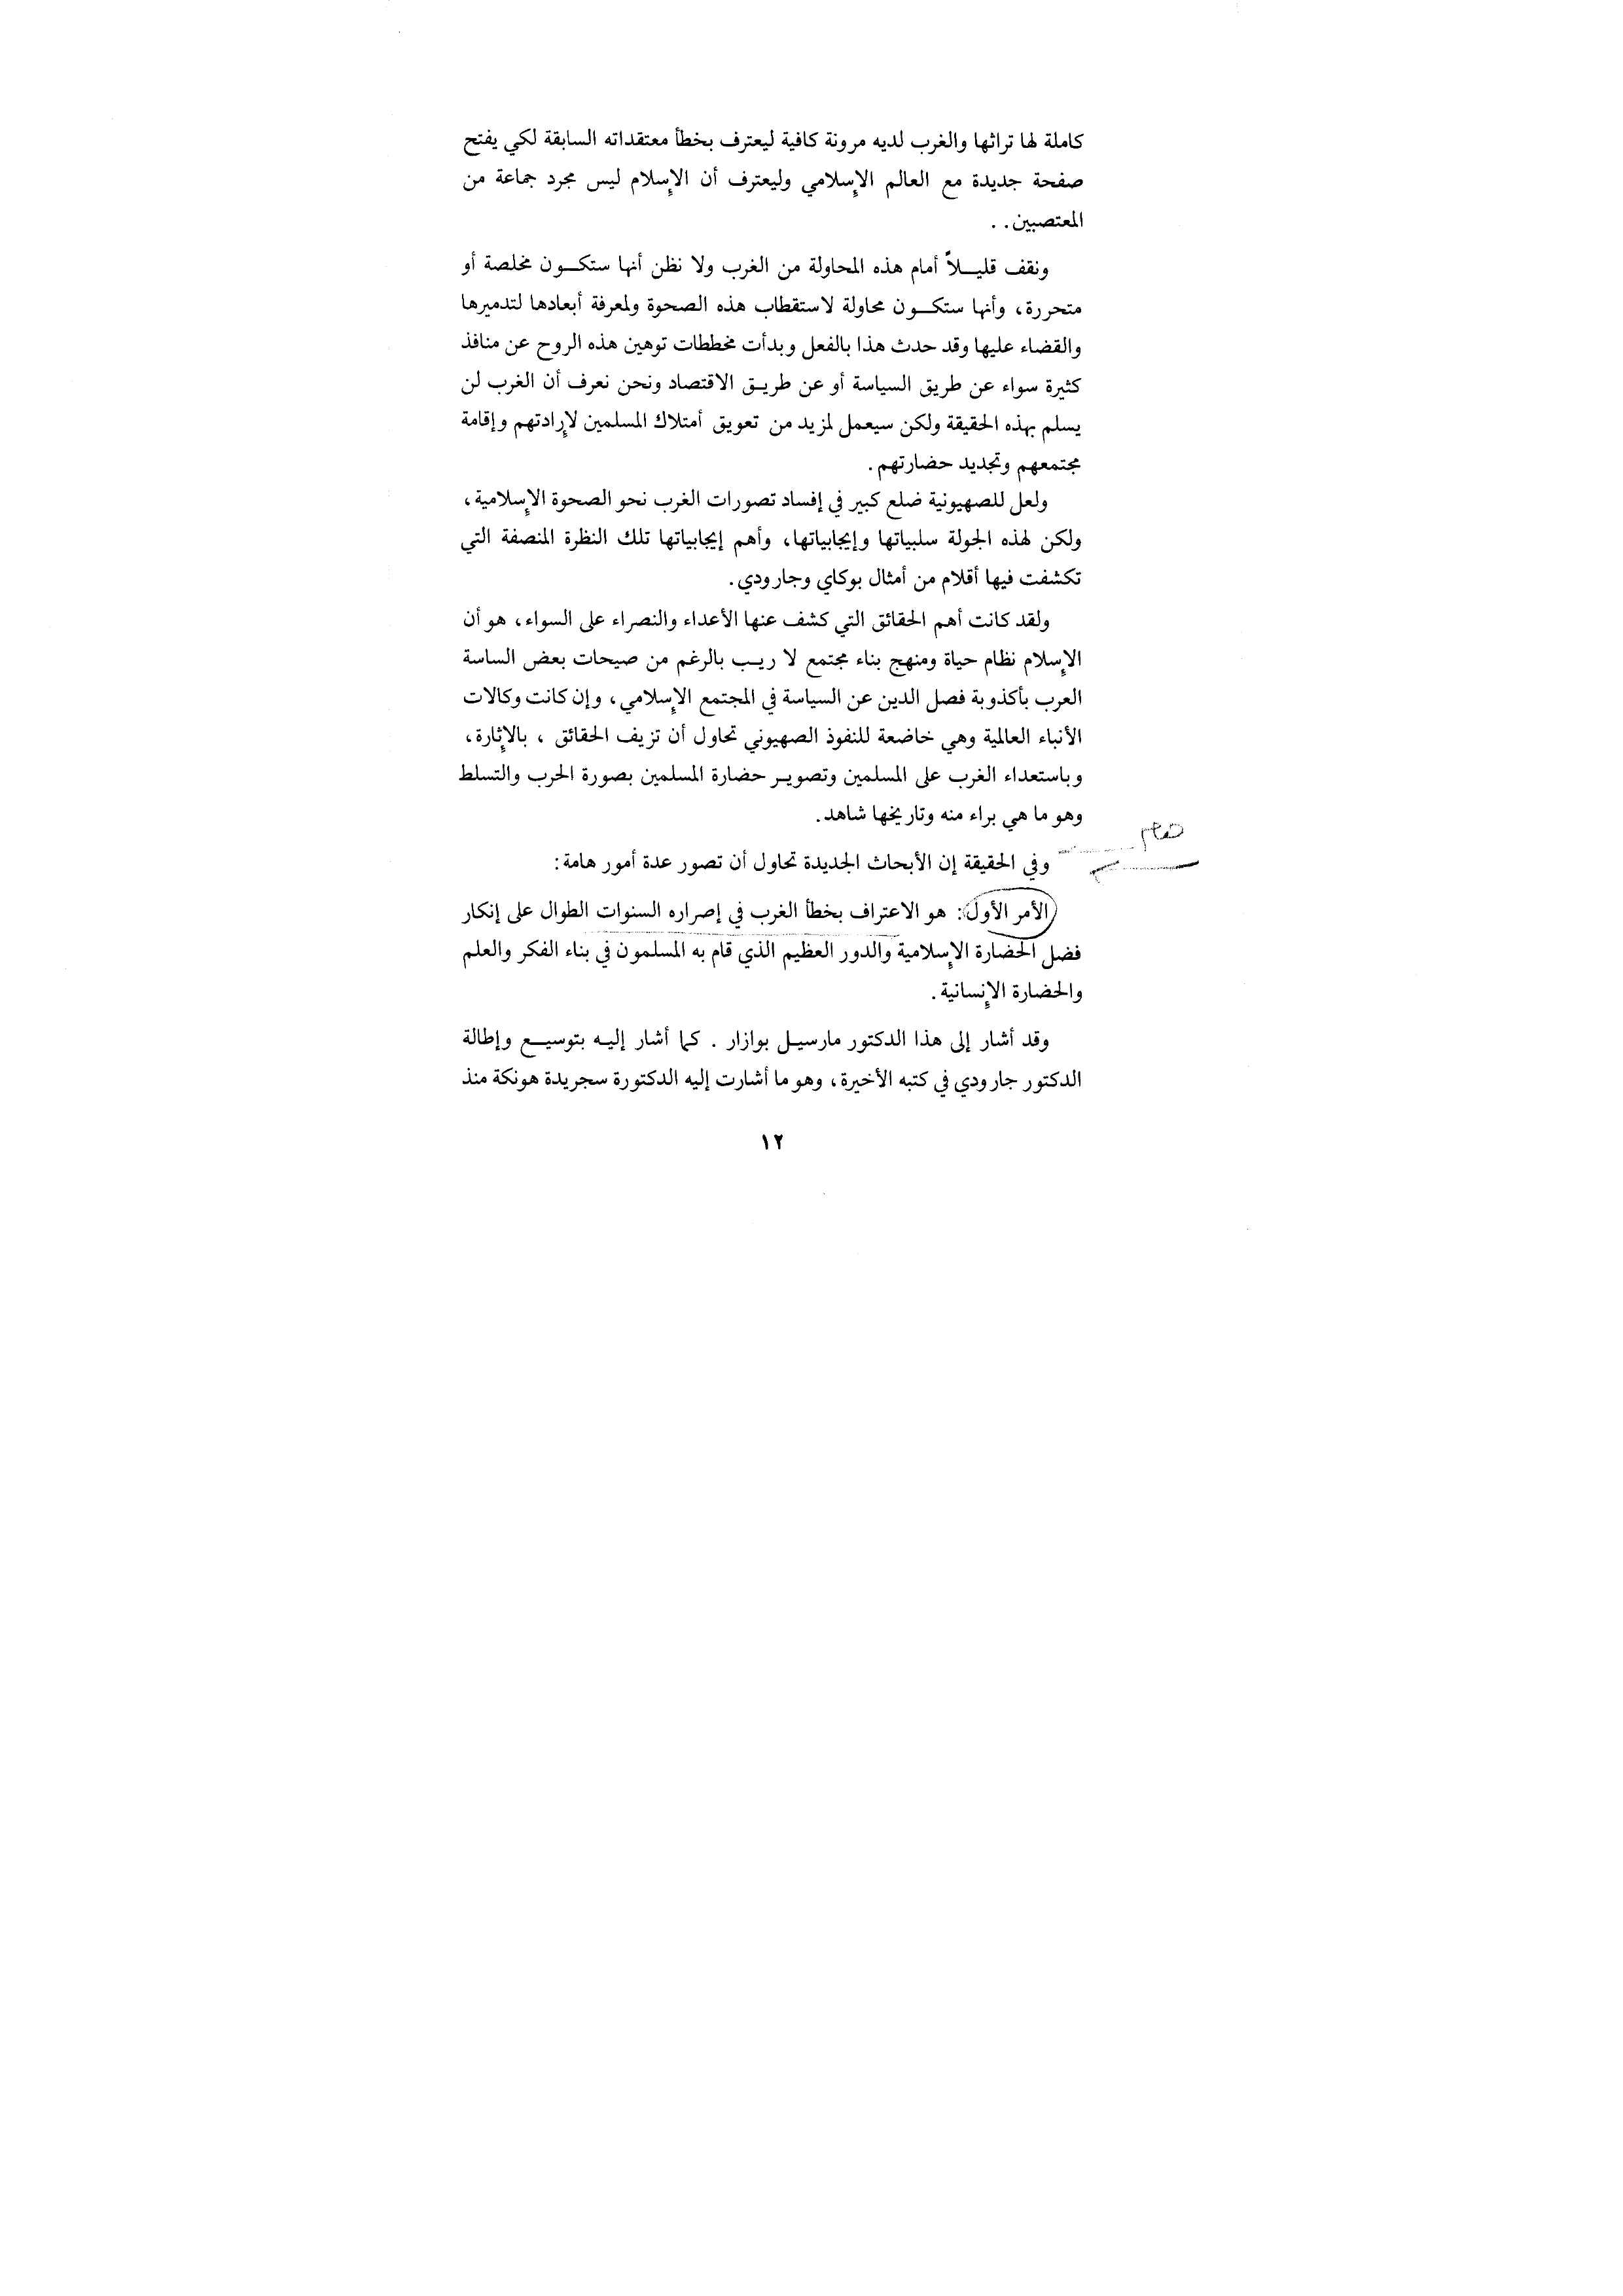 كاملة لها تراثها والغرب لديه مرونة كافية ليعترف بخطأ معتقداته السابقة لكي يفتح
صفحة جديدة مع العالم الإسلامي وليعترف أن الإسلام ليس مجرد جماعة من
المعتصبين . .
ونقف قليلاً أمام هذه المحاولة من الغرب ولا نظن أنها ستكون مخلصة أو
متحررة ، وأنها ستكون محاولة لاستقطاب هذه الصحوة ولمعرفة أبعادها لتدميرها
والقضاء عليها وقد حدث هذا بالفعل وبدأت مخططات توهين هذه الروح عن منافذ
كثيرة سواء عن طريق السياسة أو عن طريق الاقتصاد ونحن نعرف أن الغرب لن
يسلم بهذه الحقيقة ولكن سيعمل لمزيد من تعويق أمتلاك المسلمين لإرادتهم وإقامة
مجتمعهم وتجديد حضارتهم .
ولعل للصهيونية ضلع كبير في إفساد تصورات الغرب نحو الصحوة الإسلامية ،
ولكن لهذه الجولة سلبياتها وإيجابياتها ، وأهم إيجابياتها تلك النظرة المنصفة التي
تكشفت فيها أقلام من أمثال بوكاي وجارودي .
ولقد كانت أهم الحقائق التي كشف عنها الأعداء والنصراء على السواء ، هو أن
الإسلام نظام حياة ومنهج بناء مجتمع لا ريب بالرغم من صيحات بعض الساسة
العرب بأكذوبة فصل الدين عن السياسة في المجتمع الإسلامي ، وإن كانت وكالات
الأنباء العالمية وهي خاضعة للنفوذ الصهيوني تحاول أن تزيف الحقائق ، بالإثارة ،
وباستعداء الغرب على المسلمين وتصوير حضارة المسلمين بصورة الحرب والتسلط
وهو ما هي براء منه وتاريخها شاهد .
وفي الحقيقة إن الأبحاث الجديدة تحاول أن تصور عدة أمور هامة :
الأمر الأول : هو الاعتراف بخطأ الغرب في إصراره السنوات الطوال على إنكار
فضل الحضارة الإسلامية والدور العظيم الذي قام به المسلمون في بناء الفكر والعلم
والحضارة الإنسانية .
وقد أشار إلى هذا الدكتور مارسيل بوازار . كما أشار إليه بتوسيع وإطالة
الدكتور جارودي في كتبه الأخيرة ، وهو ما أشارت إليه الدكتورة سجريدة هونكة منذ
١٢